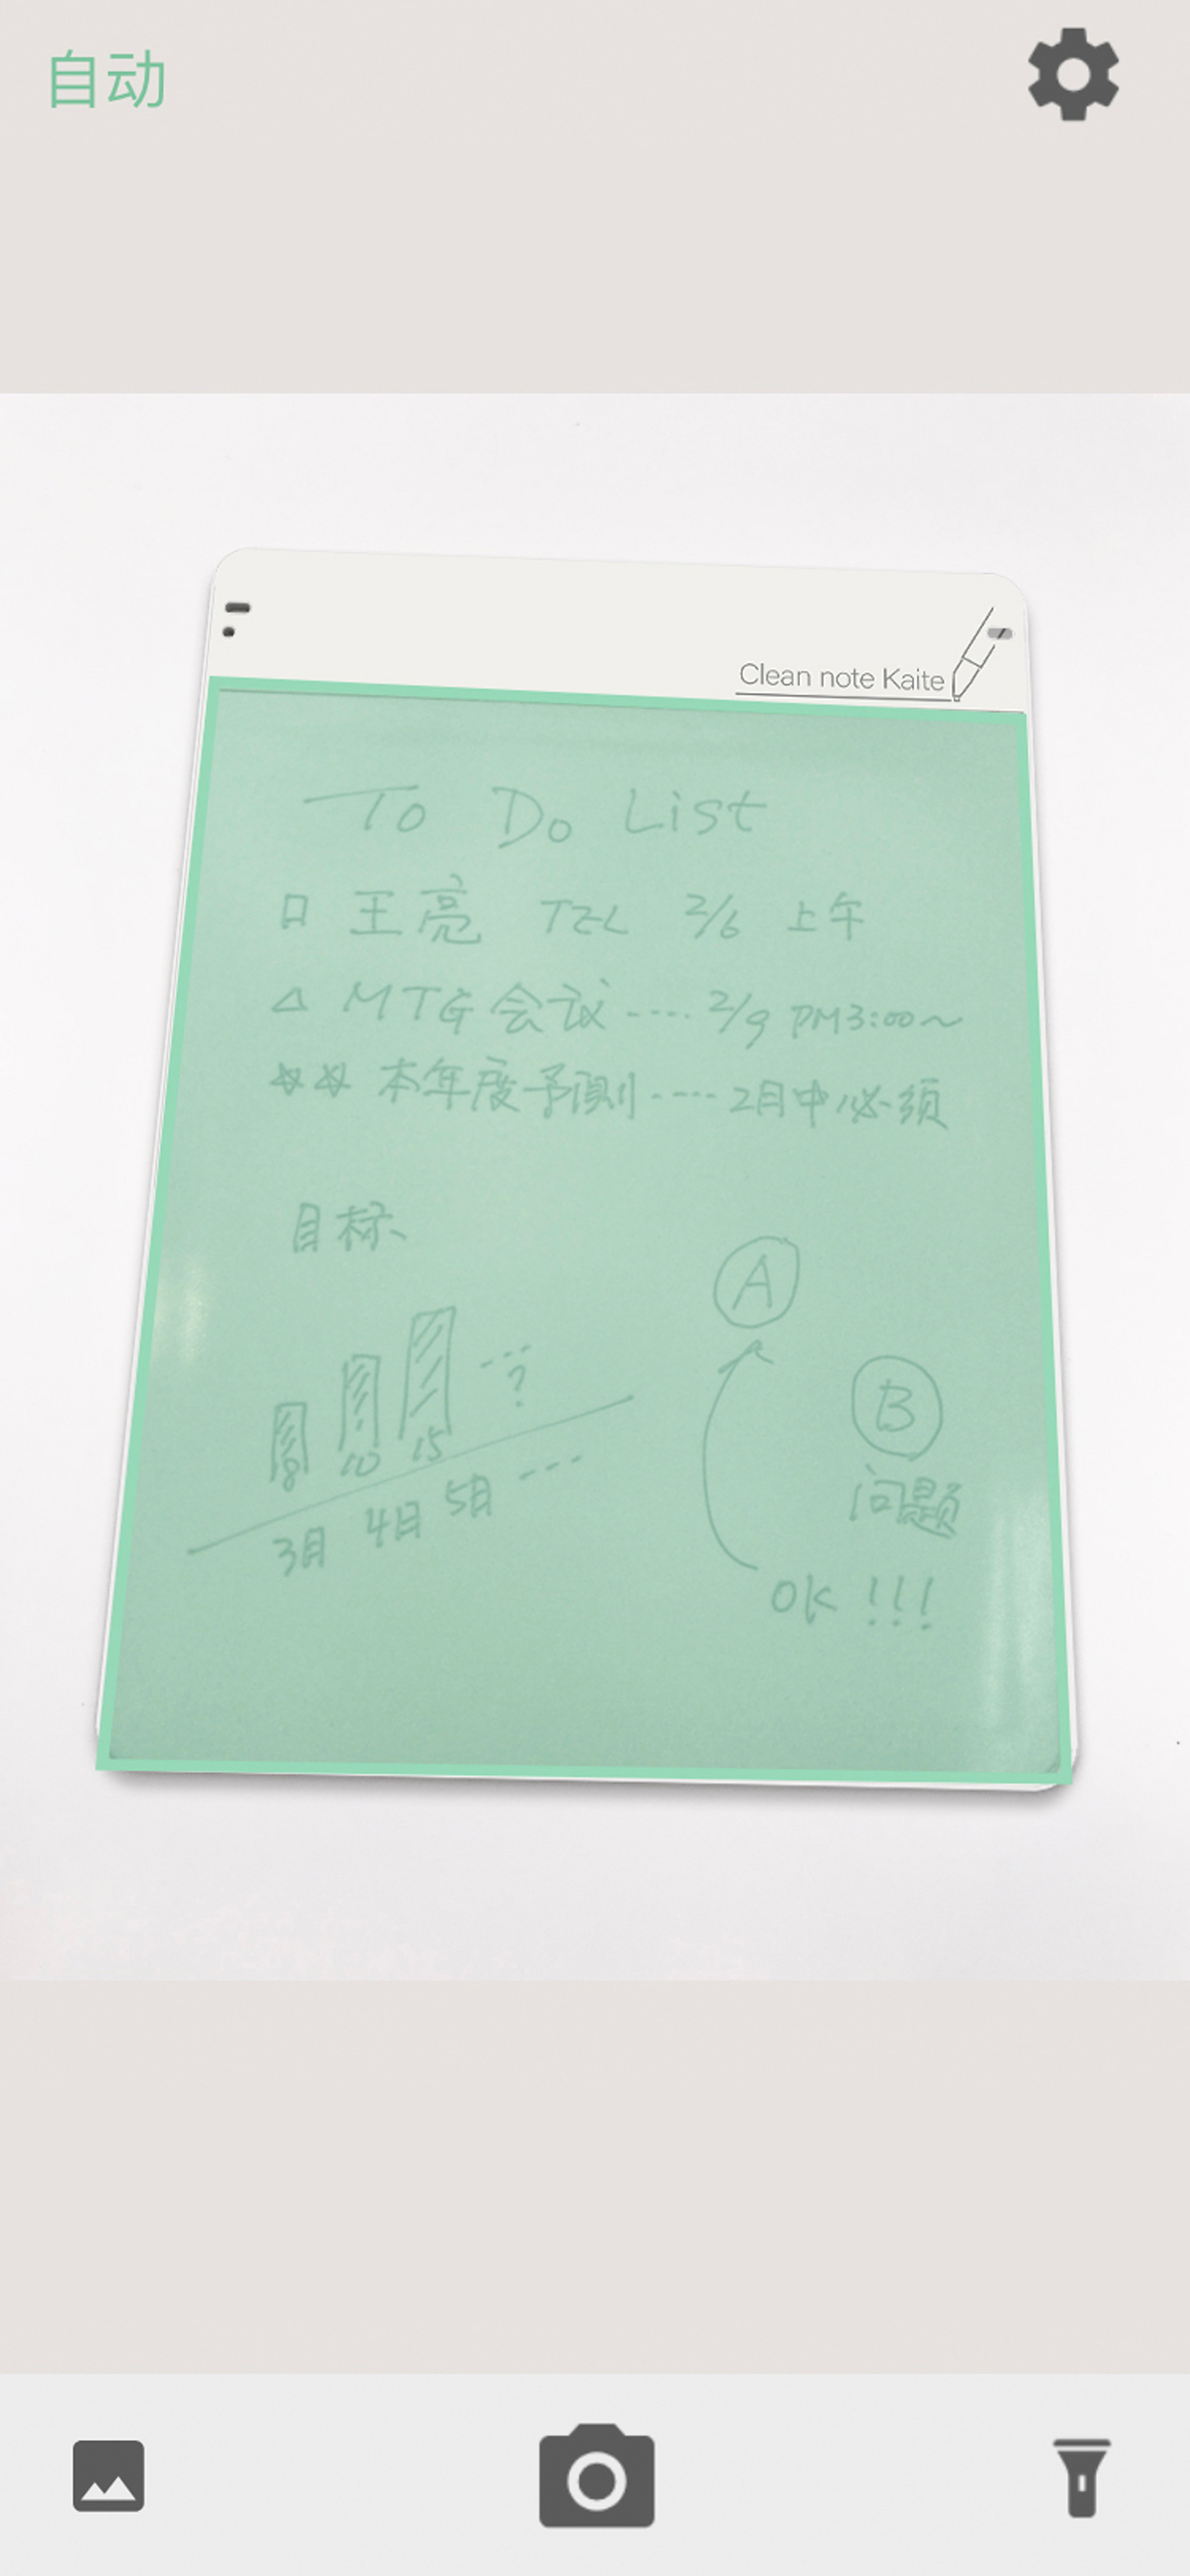 自动
Clean note Kaite
To Do List
□ 王亮 TEL 2/6 上午
△ MTG 会议 ---- 2/9 PM3:00～
☆☆ 本年度予测 ---- 2月中必须
目标
A
--- ?
B
8 10 15
3月 4月 5月 ---
问题
OK !!!